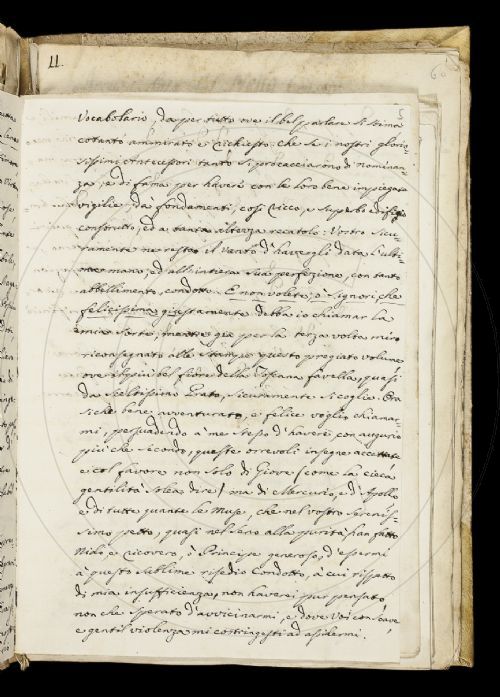 11.
60
5
Vocabolario, da per tutto ove il bel parlare si stima
cotanto ammirato e richiesto, che se i nostri glorio-
sissimi Antecessori tanto si procacciarono di nominan-
za, e di fama per havere con le loro bene impiegate
vigilie, da' fondamenti, così ricco, e superbo edifizio
construtto, ed a tanta altezza recatolo: Vostro sicu-
ramente ne resta il vanto d'havergli data l'ulti-
ma mano, ed all'intiera sua perfezione, con tanto
abbellimento, condotto. E non volete, ò Signori, che
felicissima giustamente debba io chiamar la
mia sorte, mentre già per la terza volta miro
riconsegnato alle Stampe questo pregiato volume
ove il più bel fiore della Toscana favella, quasi
da sceltissimo Prato, sicuramente si coglie. Ora
sì che bene avventurato, e felice voglio chiamar-
mi, persuadendo à me stesso d'havere con augurio
più che secondo, queste orrevoli insegne accettate
e col favore non solo di Giove (come la cieca
gentilità solea dire) ma di Mercurio, e d'Apollo
e di tutte quante le Muse, che nel vostro Sereniss-
simo petto, quasi nel seno alla purità han fatto
Nido, e ricovero, ò Principe generoso, d'
à questo sublime risedio condotto, à cui rispetto
di mia insufficienza, non haverei pur pensato
non che sperato d'avvicinarmi, e dove Voi con soave,
e gentil violenza mi costringesti ad assidermi.